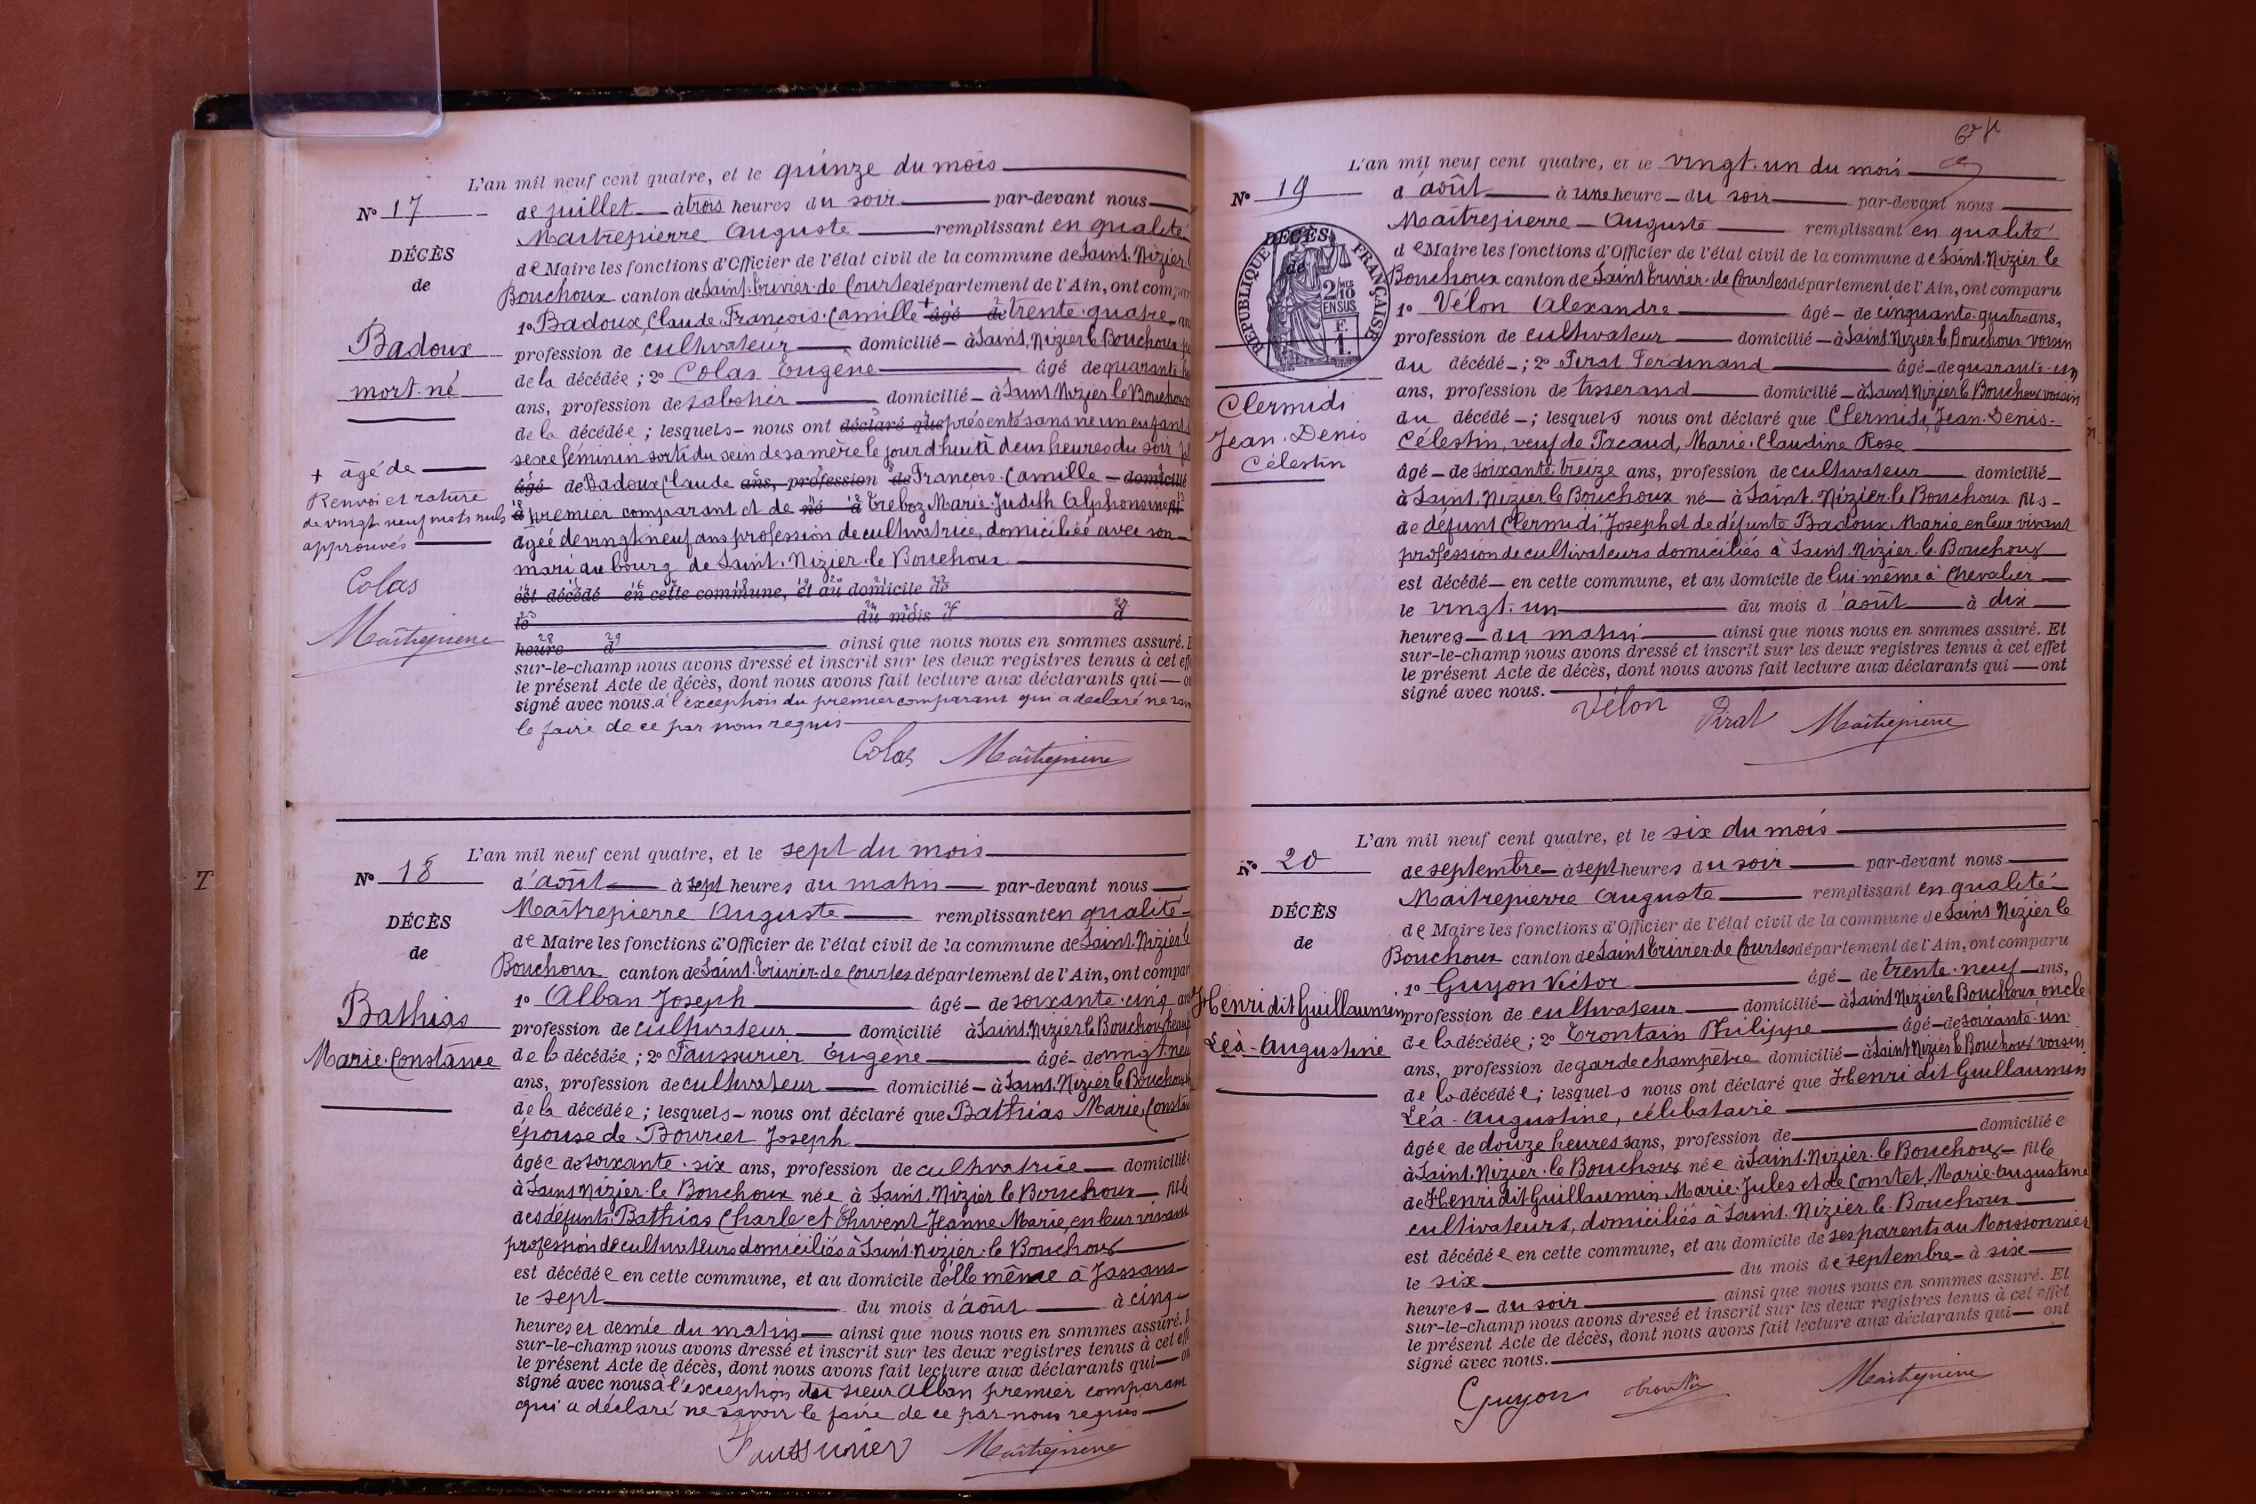 L'an mil neuf cent quatre, et le quinze du mois
N° 17
de juillet à trois heures du soir par-devant nous
Maitrepierre Auguste remplissant en qualité
DÉCÈS
de Maire les fonctions d'Officier de l'état civil de la commune de Saint-Nizier le
de
Bouchoux canton de Saint-Trivier-de Courtes département de l'Ain, ont comparu
1° Badoux, Claude-François-Camille + âgé de trente-quatre
Badoux
profession de cultivateur domicilié à Saint-Nizier le Bouchoux
mort-né
de la décédée ; 2° Colas Eugène âgé de quarante
ans, profession de sabotier domicilié à Saint Nizier le Bouchoux
de la décédée ; lesquels nous ont déclaré que présenté sans vie un enfant
sexe féminin sorti du sein de sa mère le jourd'hui à deux heures du soir
+ âgé de
âgé de Badoux Claude ans, profession de François-Camille domicilié
Renvoi et rature
de vingt neuf mots nuls
à premier comparant et de né à Treboz Marie-Judith Alphonsine
approuvés
âgée de vingt neuf ans profession de cultivatrice, domiciliée avec son
mari au bourg de Saint-Nizier-le Bouchoux
Colas
est décédé en cette commune, et au domicile de
le du mois d à
Maitrepierre
heure d ainsi que nous nous en sommes assuré.
sur-le-champ nous avons dressé et inscrit sur les deux registres tenus à cet
le présent Acte de décès, dont nous avons fait lecture aux déclarants qui
signé avec nous à l'exception du premier comparant qui a déclaré ne
le faire de ce par nous requis
Colas Maitrepierre
L'an mil neuf cent quatre, et le sept du mois
N° 18
d'août à sept heures du matin par-devant nous
Maîtrepierre Auguste remplissant en qualité
DÉCÈS
de Maire les fonctions d'Officier de l'état civil de la commune de Saint-Nizier le
de
Bouchoux canton de Saint-Trivier-de Courtes département de l'Ain, ont compar
1° Alban Joseph âgé de soixante-cinq ans
Bathias
profession de cultivateur domicilié à Saint-Nizier le Bouchoux
Marie-Constance
de la décédée ; 2° Faussurier Eugène âgé de vingt-neuf
ans, profession de cultivateur domicilié à Saint-Nizier le Bouchoux
de la décédée ; lesquels nous ont déclaré que Bathias Marie Constan
épouse de Bourcet Joseph
âgée de soixante-six ans, profession de cultivatrice domiciliée
à Saint Nizier-le Bouchoux née à Saint-Nizier le Bouchoux fille
des défunts Bathias Charle et Jeanne Marie, en leur vivant
profession de cultivateurs domiciliés à Saint-Nizier-le Bouchoux
est décédée en cette commune, et au domicile d'elle même à Jassans
le sept du mois d'août à cinq
heures et demie du matin ainsi que nous nous en sommes assuré.
sur-le-champ nous avons dressé et inscrit sur les deux registres tenus à cet
le présent Acte de décès, dont nous avons fait lecture aux déclarants qui
signé avec nous à l'exception du sieur Alban premier comparant
qui a déclaré ne savoir le faire de ce par nous requis
Faussurier Maitrepierre
L'an mil neuf cent quatre, et le vingt-un du mois
N° 19
d'août à une heure du soir par-devant nous
Maîtrepierre Auguste remplissant en qualité
DÉCÈS
de
RÉPUBLIQUE FRANÇAISE
2/10 EN SUS
de Maire les fonctions d'Officier de l'état civil de la commune de Saint-Nizier le
Bouchoux canton de Saint Trivier-de Courtes département de l'Ain, ont comparu
1° Vélon Alexandre âgé de cinquante-quatre ans,
profession de cultivateur domicilié à Saint-Nizier le Bouchoux voisin
du décédé ; 2° Pirat Ferdinand âgé de quarante-un
ans, profession de tisserand domicilié à Saint-Nizier le Bouchoux voisin
Clermidi
Jean-Denis
Célestin
du décédé ; lesquels nous ont déclaré que Clermidi, Jean-Denis-
Célestin, veuf de Pacaud, Marie-Claudine Rose
âgé de soixante-treize ans, profession de cultivateur domicilié
à Saint-Nizier le Bouchoux né à Saint-Nizier le Bouchoux fils
de défunt Clermidi Joseph et de défunte Badoux, Marie en leur vivant
profession de cultivateurs domiciliés à Saint-Nizier-le-Bouchoux
est décédé en cette commune, et au domicile de lui même à Chevalier
le vingt-un du mois d'août à dix
heures du matin ainsi que nous nous en sommes assuré. Et
sur-le-champ nous avons dressé et inscrit sur les deux registres tenus à cet effet
le présent Acte de décès, dont nous avons fait lecture aux déclarants qui ont
signé avec nous.
Vélon Pirat Maitrepierre
L'an mil neuf cent quatre, et le six du mois
N° 20
de septembre à sept heures du soir par-devant nous
Maitrepierre Auguste remplissant en qualité
DÉCÈS
de Maire les fonctions d'Officier de l'état civil de la commune de Saint Nizier le
de
Bouchoux canton de Saint Trivier-de Courtes département de l'Ain, ont comparu
1° Guyon Victor âgé de trente-neuf ans,
Henri dit Guillaumin
profession de cultivateur domicilié à Saint Nizier le Bouchoux oncle
Léà-Augustine
de la décédée ; 2° Trontain Philippe âgé de soixante-un
ans, profession de garde champêtre domicilié à Saint Nizier le Bouchoux voisin
de la décédée ; lesquels nous ont déclaré que Henri dit Guillaumin
Léà-Augustine, célibataire
âgée de douze heures ans, profession de domiciliée
à Saint-Nizier-le Bouchoux née à Saint-Nizier-le Bouchoux fille
de Henri dit Guillaumin, Marie-Jules et de Comtet, Marie-Augustine
cultivateurs, domiciliés à Saint-Nizier-le-Bouchoux
est décédée en cette commune, et au domicile de ses parents au Moissonnier
le six du mois de septembre à six
heures du soir ainsi que nous nous en sommes assuré. Et
sur-le-champ nous avons dressé et inscrit sur les deux registres tenus à cet effet
le présent Acte de décès, dont nous avons fait lecture aux déclarants qui ont
signé avec nous.
Guyon Maitrepierre